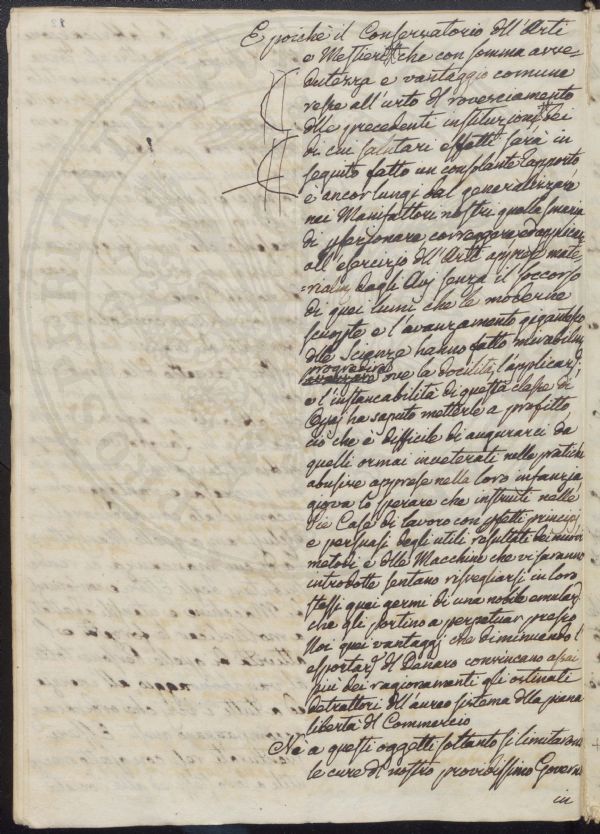 12
E poichè il Conservatorio dll'Arti
e Mestieri che con somma avve=
dutezza e vantaggio comune
resse all'urto dl rovesciamento
dlle precedenti instituzioni dei
di cui salutari effetti sarà in
seguito fatto un consolante Rapporto
è ancor lungi dal generalizzare
nei Manifattori nostri quella smania
di pfezionare correggere ed applicare
all'esercizio dll'Arti apprese mate=
=rialm dagli Avj senza il soccorso
di quei lumi che le moderne
scoperte e l'avanzamento gigantesco
dlle Scienze hanno fatto mirabilm
progredire
ove la docilità, l'applicaz
e l'instancabilità di questa classe di
Opaj ha saputo metterle a profitto,
ciò che è difficile di augurarci da
quelli ormai inveterati nelle pratiche
abusive apprese nella loro infanzia
giova lo sperare che instruiti nelle
Pie Case di lavoro con pfetti principj
e persuasi degli utili resultati dei nuovi
metodi e dlle Macchine che vi saranno
introdotte sentano risvegliarsi in loro
stessi quei germi di una nobile emulaz
che gli portino a perpetuar presso
Noi quei vantaggj che diminuendo l'
esportaz dl Danaro convincano assai
più dei ragionamenti gli ostinati
detrattori dll'aureo sistema dlla piena
libertà dl Commercio
Nè a questi oggetti soltanto si limitarono
le cure dl nostro providissimo Governo
in